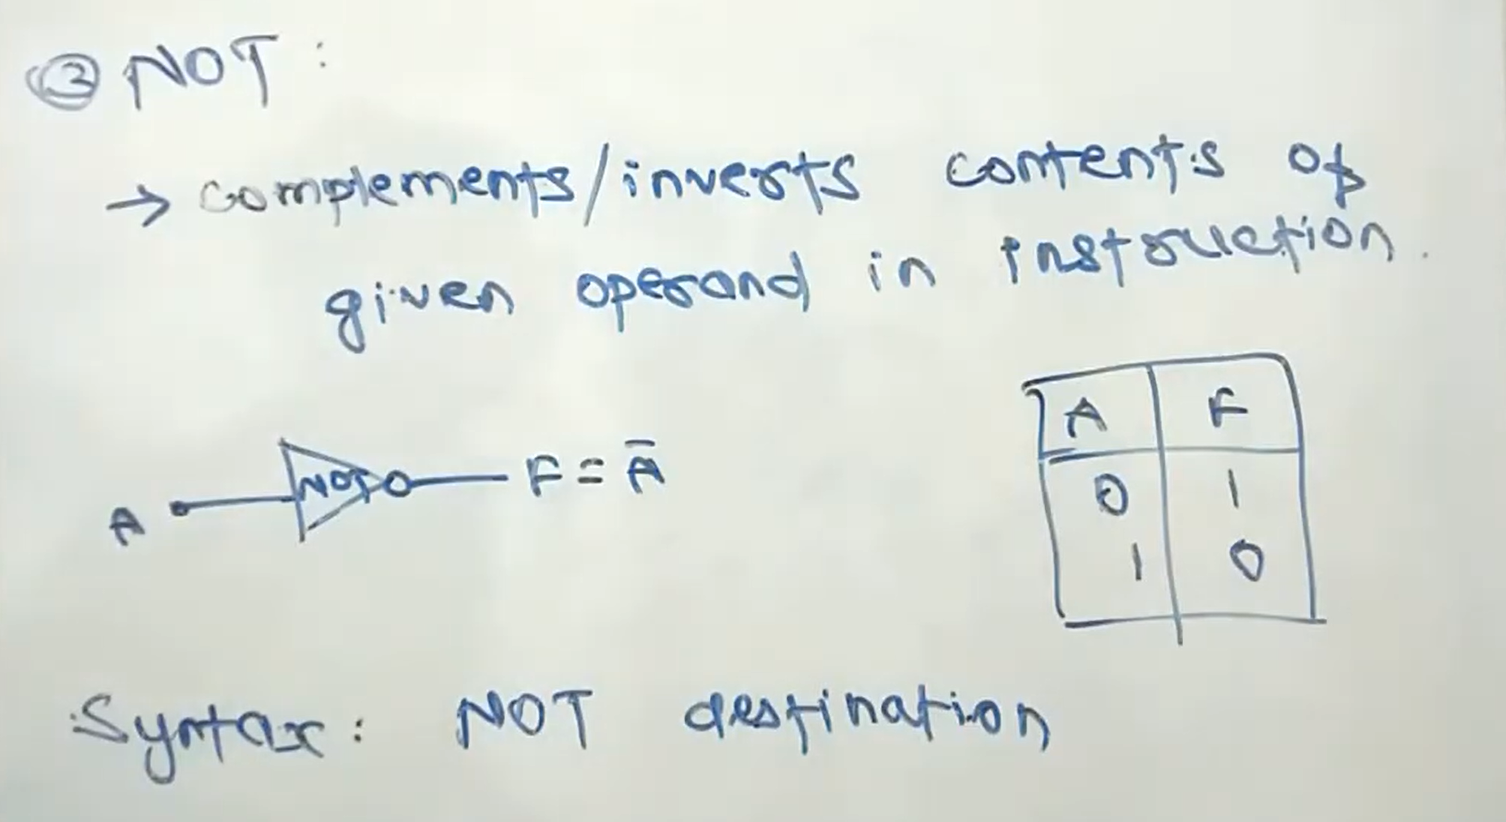 ③ NOT :
→ complements/inverts contents of
given operand in instruction.
A NOT F = Ā
A F
0 1
1 0
Syntax : NOT destination